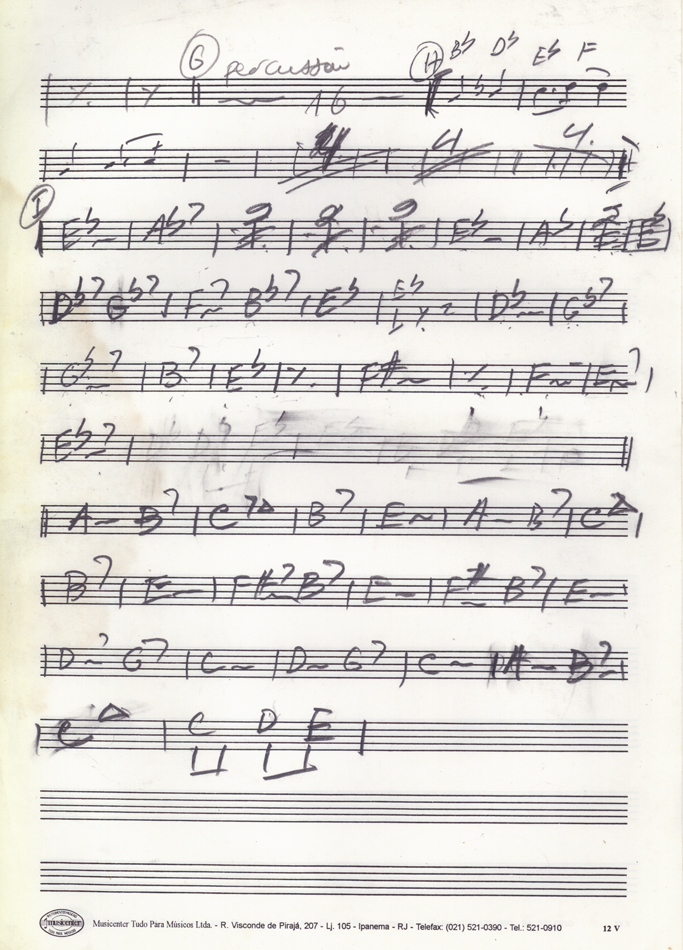 G percussão H B♭ D♭ E♭ F
16
4 4 4.
I
E♭- A♭7 E♭- A♭
D♭7 G♭7 F-7 B♭7 E♭ E♭ D♭- G♭7
G♭-7 B7 E♭ F#- F- E-7
E♭-7
A- B7 C7△ B7 E- A- B7 C△
B7 E- F#-7 B7 E- F#- B7 E-
D-7 G7 C- D- G7 C- B7
C△ C D E
musicenter Musicenter Tudo Para Músicos Ltda. - R. Visconde de Pirajá, 207 - Lj. 105 - Ipanema - RJ - Telefax: (021) 521-0390 - Tel.: 521-0910 12 V